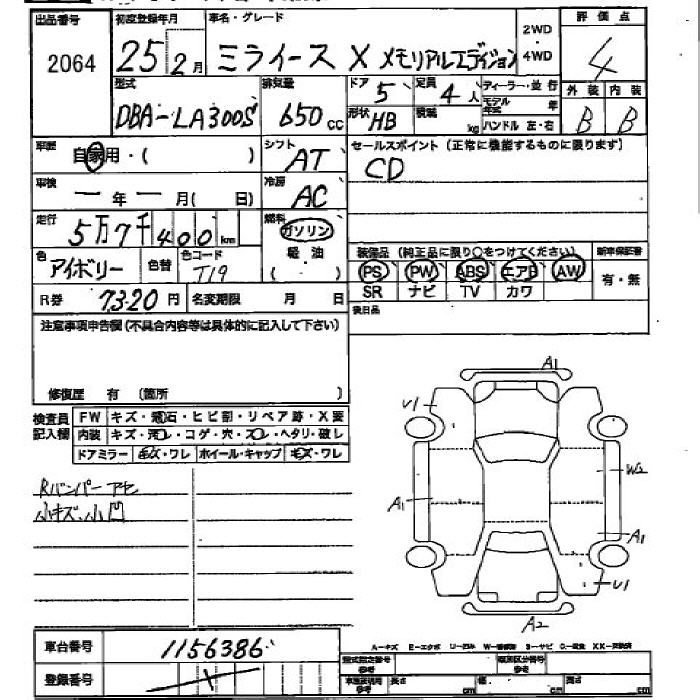 出品番号 初度登録年月 車名・グレード 2WD・4WD 評価点
2064 25 2月 ミライース X メモリアルエディション 4
型式 排気量 ドア 5 定員 4人 ディーラー・並行 外装 内装
DBA-LA300S 650cc 形状 HB 積載 kg モデル年式 年 ハンドル 左・右 B B
車歴 自家用・( ) シフト AT セールスポイント(正常に機能するものに限ります)
CD
車検 ー年ー月(ー日) 冷房 AC
走行 5万7千400km 燃料 ガソリン 軽油 ( )
色 アイボリー 色替 色コード T19
装備品(純正品に限り○をつけてください) 新車保証書
PS PW ABS エアB AW 有・無
SR ナビ TV カワ
R券 7320円 名変期限 月 日 後日品
注意事項申告欄(不具合内容等は具体的に記入して下さい)
修復歴 有 (箇所 )
検査員記入欄 FW キズ・飛石・ヒビ割・リペア跡・X要
内装 キズ・汚レ・コゲ・穴・スレ・ヘタリ・破レ
ドアミラー キズ・ワレ ホイール・キャップ キズ・ワレ
Rバンパー アセ
小キズ、小凹
A1
U1
W2
A1
A1
U1
A2
車台番号 1156386
登録番号
A-キズ E-エクボ U-凹み W-補修跡 S-サビ C-腐食 XX-交換済
型式指定番号 参考 類別区分番号 参考
長さ cm 幅 cm 高さ cm